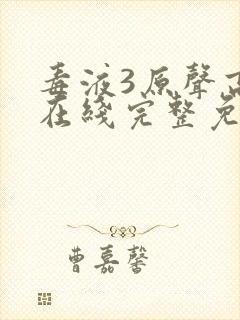 毒液3原聲高
在綫完整免
曹嘉馨